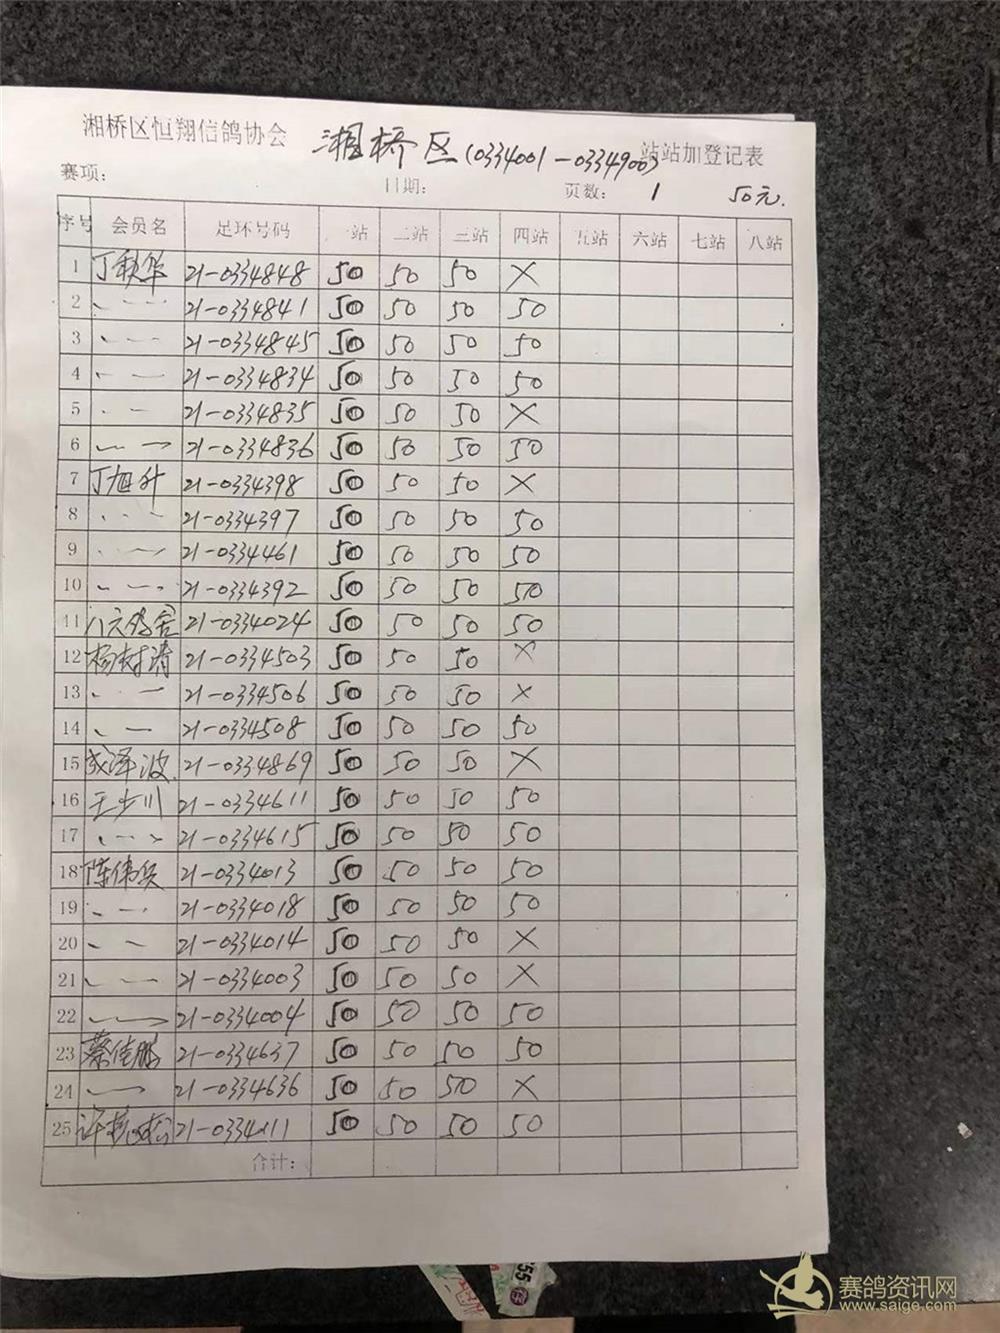 湘桥区恒翔信鸽协会 湘桥区(0334001-0334900) 站站加登记表
赛项: 日期: 页数: 1 50元.
序号 会员名 足环号码 一站 二站 三站 四站 五站 六站 七站 八站
1 丁秋华 21-0334848 50 50 50 ×
2 21-0334841 50 50 50 50
3 21-0334845 50 50 50 50
4 21-0334834 50 50 50 50
5 21-0334835 50 50 50 ×
6 21-0334836 50 50 50 50
7 丁旭升 21-0334398 50 50 50 ×
8 21-0334397 50 50 50 50
9 21-0334461 50 50 50 50
10 21-0334392 50 50 50 50
11 八六鸽舍 21-0334024 50 50 50 50
12 杨树清 21-0334503 50 50 50 ×
13 21-0334506 50 50 50 ×
14 21-0334508 50 50 50 50
15 成泽波 21-0334869 50 50 50 ×
16 王少川 21-0334611 50 50 50 50
17 21-0334615 50 50 50 50
18 陈伟兵 21-0334013 50 50 50 50
19 21-0334018 50 50 50 50
20 21-0334014 50 50 50 ×
21 21-0334003 50 50 50 ×
22 21-0334004 50 50 50 50
23 蔡佳鹏 21-0334637 50 50 50 50
24 21-0334636 50 50 50 ×
25 50 50 50 50
合计:
55
赛鸽资讯网
www.saige.com